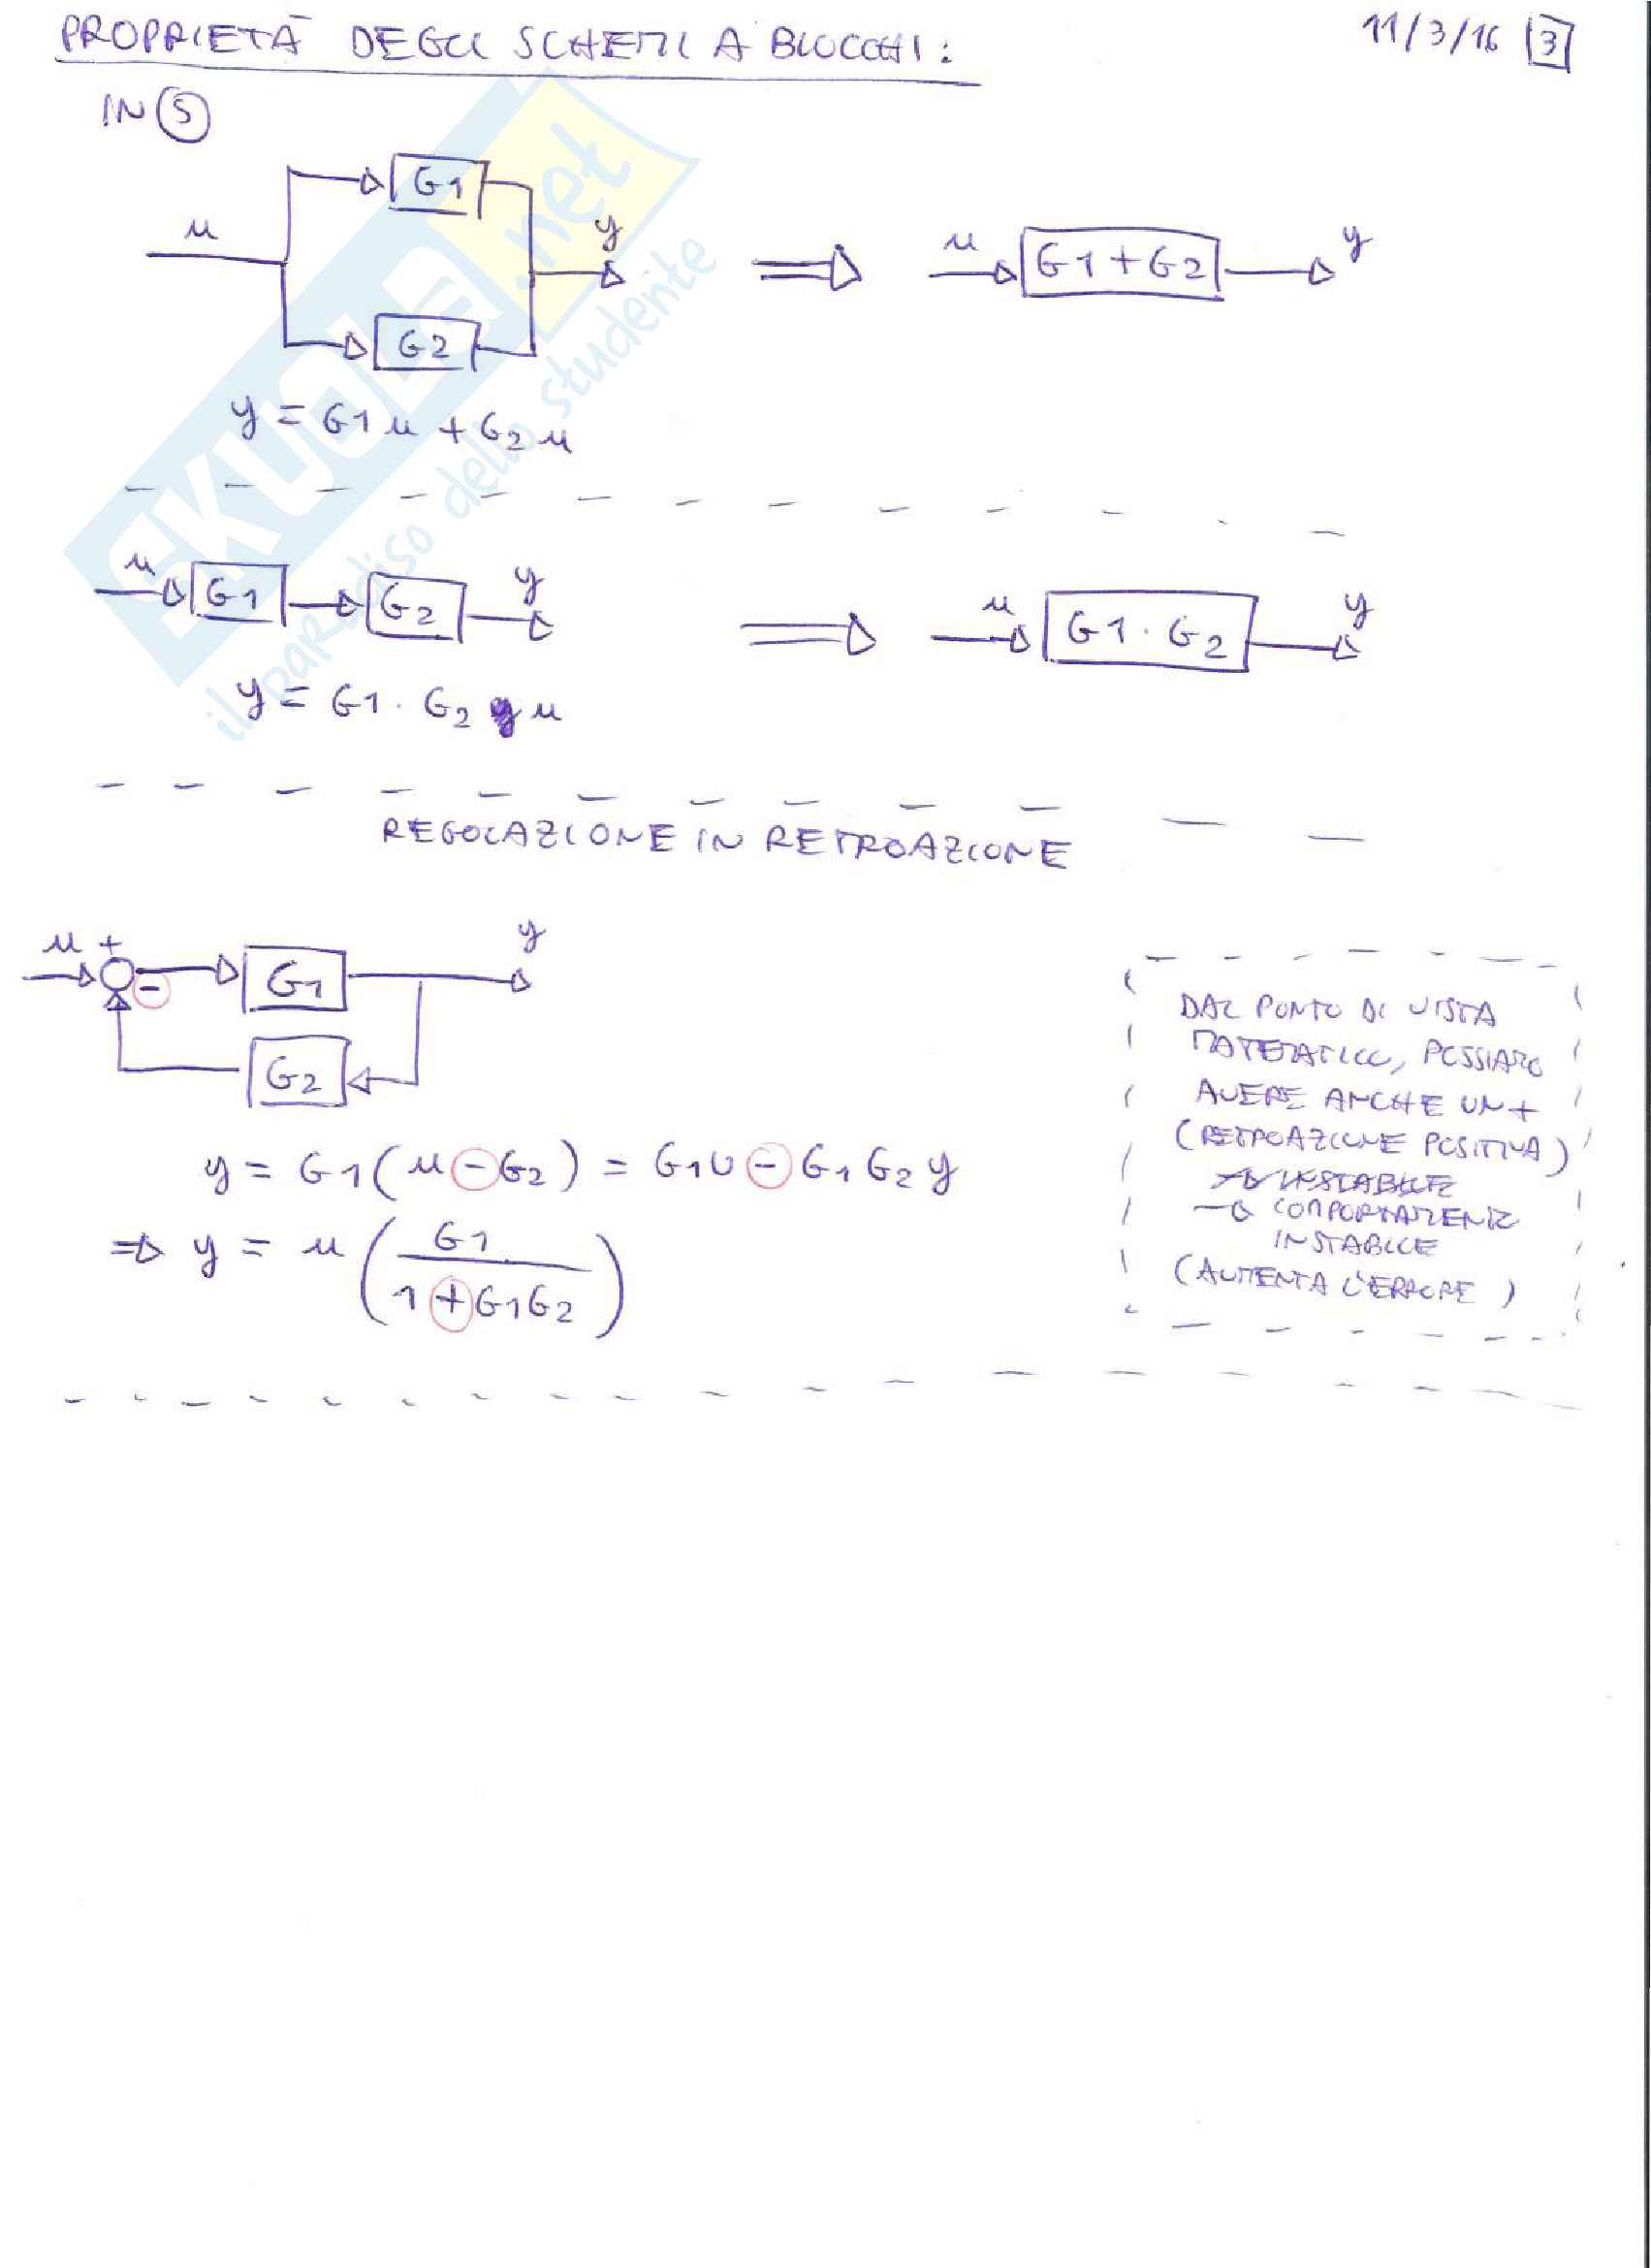 PROPRIETÀ DEGLI SCHEMI A BLOCCHI:
11/3/16 3
IN S
u
G1
G2
y
u
G1+G2
y
y = G1 u + G2 u
u
G1
G2
y
u
G1 · G2
y
y = G1 · G2 u
REGOLAZIONE IN RETROAZIONE
u +
-
G1
y
G2
y = G1(u - G2) = G1U - G1G2 y
⇒ y = u ( G1 / 1 + G1G2 )
DAL PUNTO DI VISTA
MATEMATICO, POSSIAMO
AVERE ANCHE UN +
(RETROAZIONE POSITIVA)
→ INSTABILE
→ COMPORTAMENTO
INSTABILE
(AUMENTA L'ERRORE)
SKUOLA.net
il paradiso dello studente